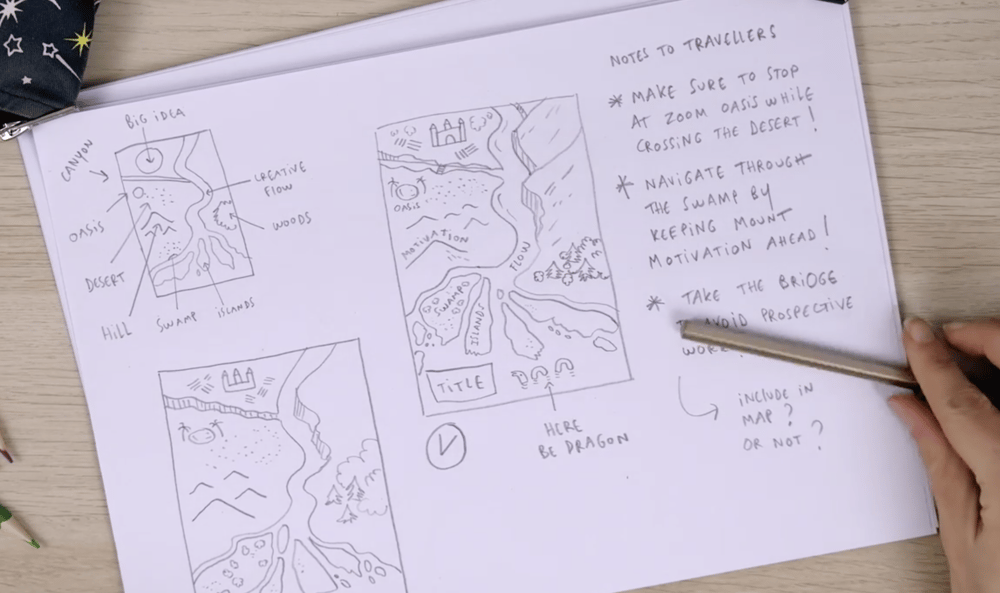 BIG IDEA
CANYON
CREATIVE
FLOW
OASIS
WOODS
DESERT
HILL
SWAMP
ISLANDS
OASIS
MOTIVATION
FLOW
SWAMPO
ISLANDS
TITLE
V
HERE
BE DRAGON
NOTES TO TRAVELLERS
* MAKE SURE TO STOP
AT ZOOM OASIS WHILE
CROSSING THE DESERT!
* NAVIGATE THROUGH
THE SWAMP BY
KEEPING MOUNT
MOTIVATION AHEAD!
* TAKE THE BRIDGE
AVOID PROSPECTIVE
INCLUDE IN
MAP?
OR NOT?